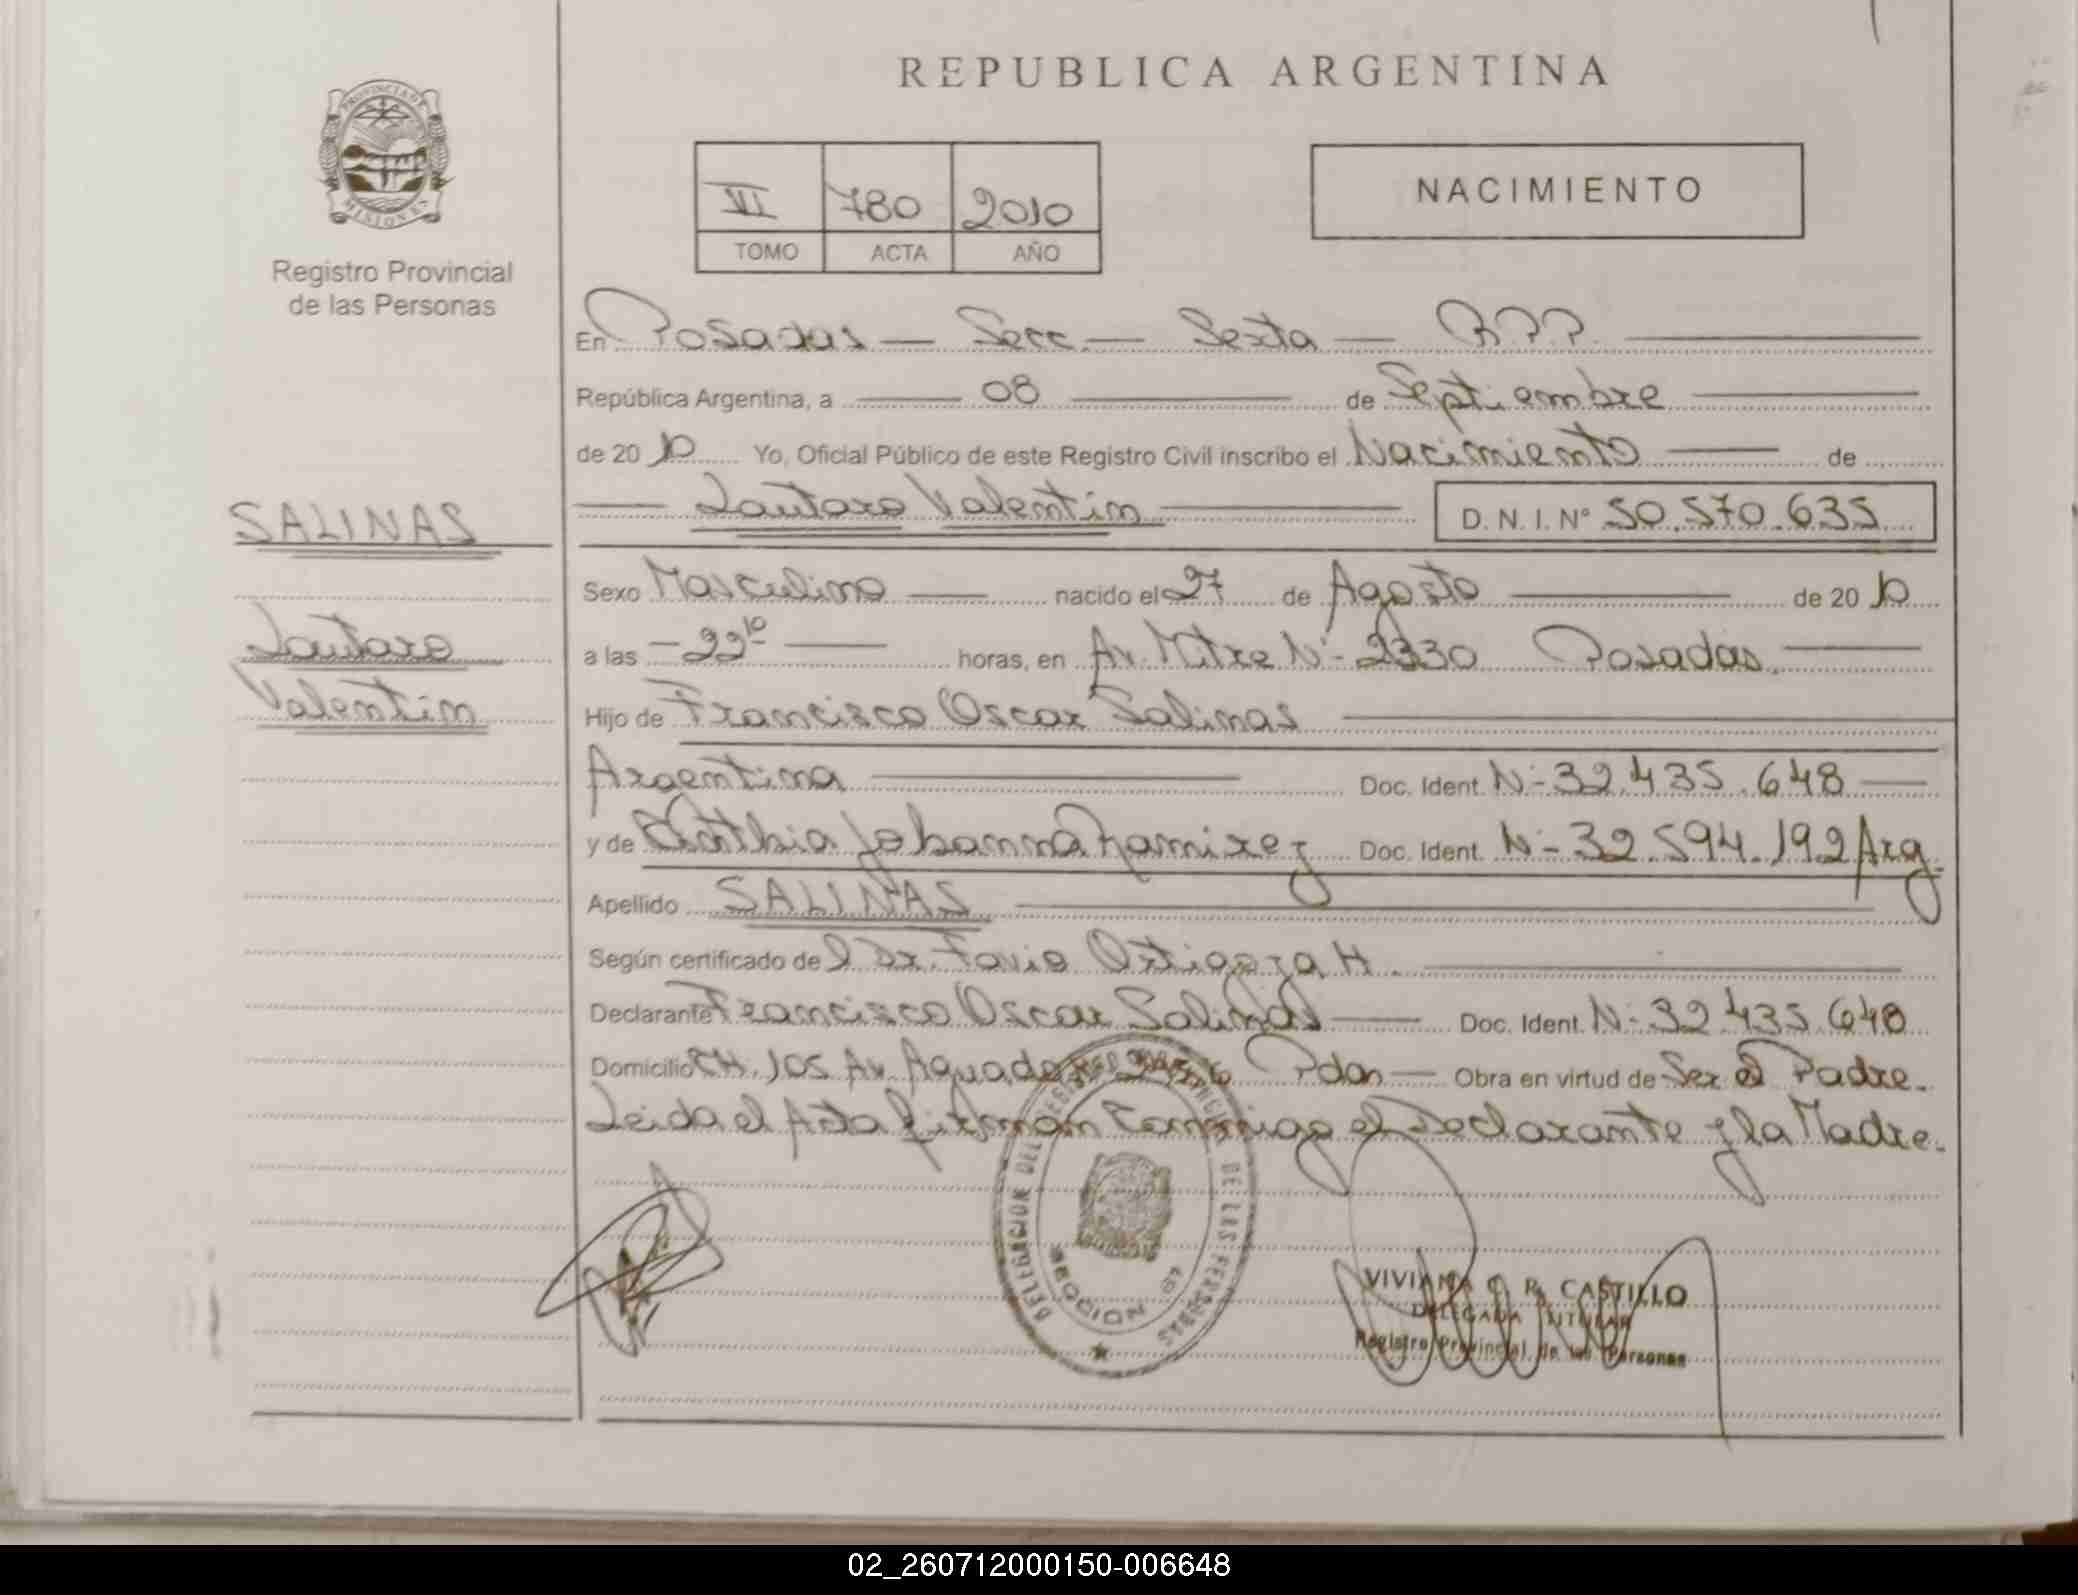 REPUBLICA ARGENTINA
PROVINCIA DE
MISIONES
Registro Provincial
de las Personas
VI 780 2010
TOMO ACTA AÑO
NACIMIENTO
En Posadas — Secc. — Sexta — R.P.P.
República Argentina, a 08 de Septiembre
de 2010 Yo, Oficial Público de este Registro Civil inscribo el Nacimiento de
Lautaro Valentin D.N.I. Nº 50.570.635
SALINAS
Lautaro
Valentin
Sexo Masculino nacido el 27 de Agosto de 2010
a las - 22¹⁰ horas, en Av. Mitre Nº- 2330 Posadas.
Hijo de Francisco Oscar Salinas
Argentina Doc. Ident. Nº- 32.435.648
y de Cinthia Johanna Ramirez Doc. Ident. Nº- 32.594.192 Arg.
Apellido SALINAS
Según certificado de l Dr. Favio Ortigoza H.
Declarante Francisco Oscar Salinas Doc. Ident. Nº- 32.435.648
Domicilio CH. 105 Av. Aguado Pdas Obra en virtud de Ser el Padre.
Leida el Acta firman Conmigo el Declarante y la Madre.
DELEGACION DEL REGISTRO PROVINCIAL DE LAS PERSONAS
SECCION
VIVIANA C. R. CASTILLO
DELEGADA TITULAR
Registro Provincial de las Personas
02_260712000150-006648